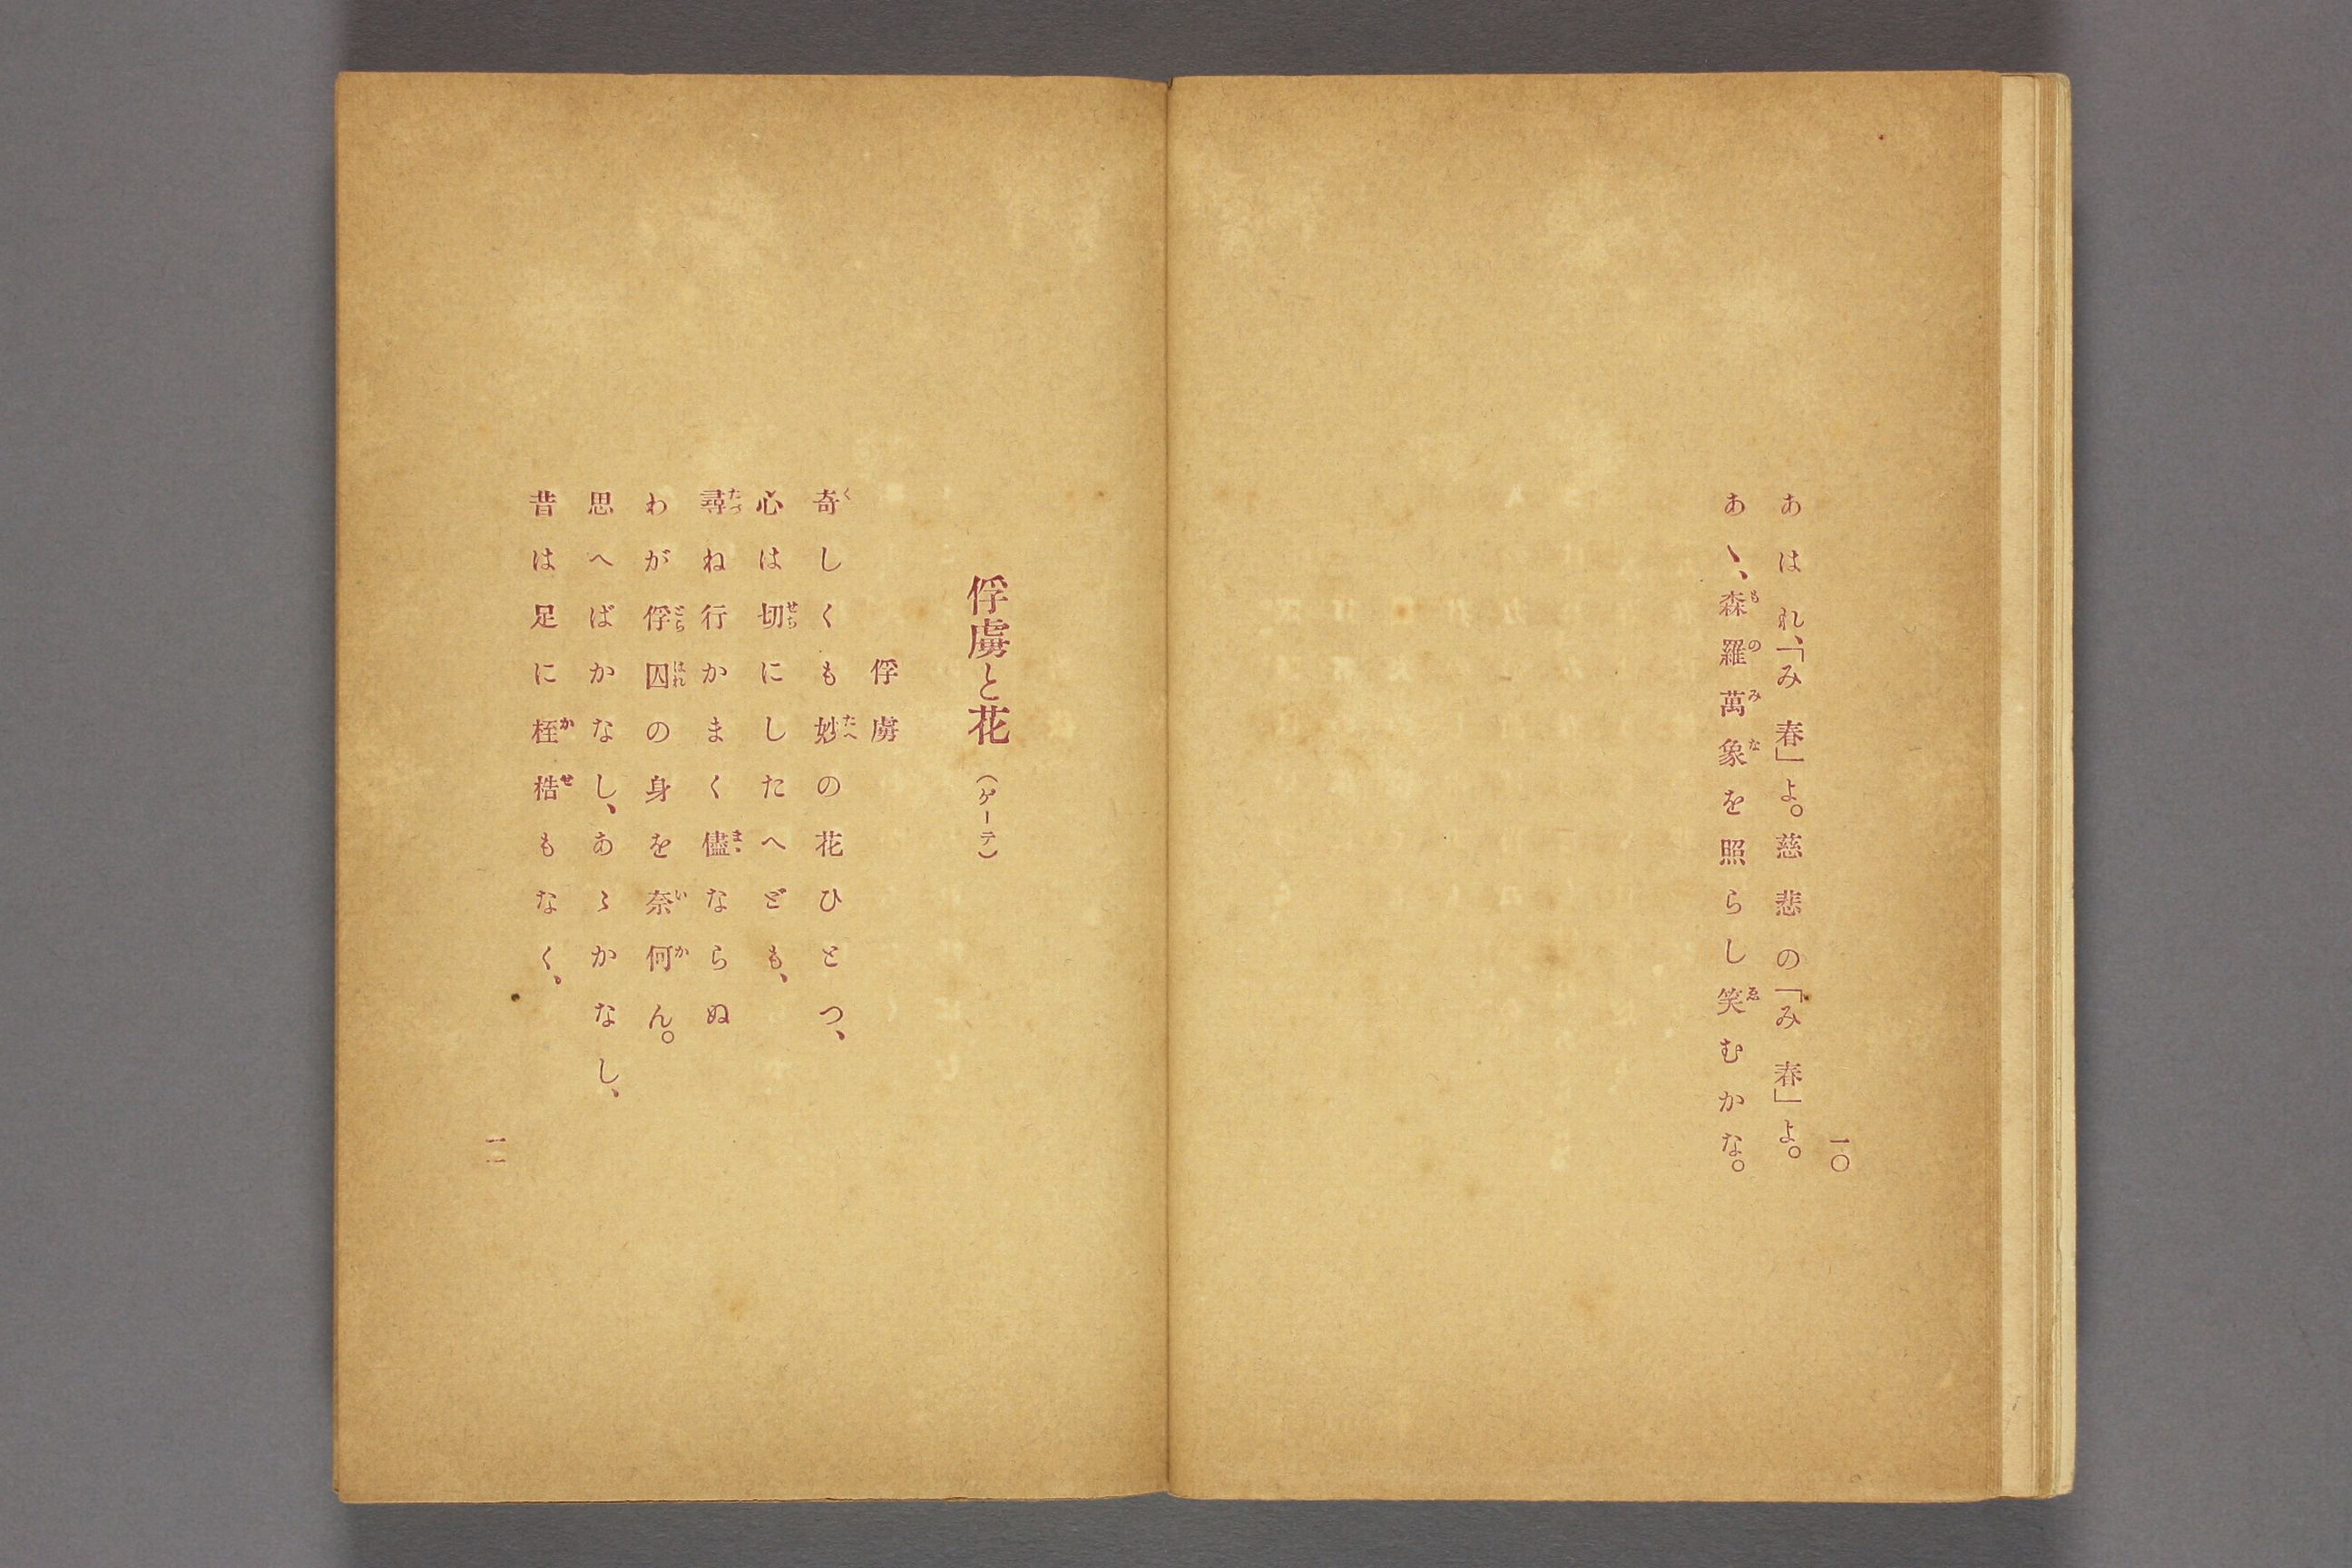 一〇
あはれ、「み春」よ。慈悲の「み春」よ。
あゝ、森羅萬象を照らし笑むかな。
俘虜と花（ゲーテ）
俘虜
奇しくも妙の花ひとつ、
心は切にしたへども、
尋ね行かまく儘ならぬ
わが俘囚の身を奈何ん。
思へばかなし、あゝかなし、
昔は足に桎梏もなく、
一一